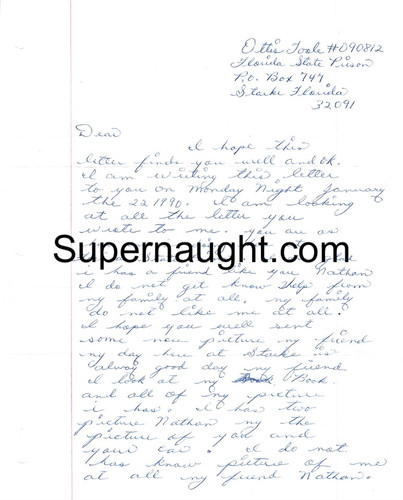 Ottis Toole #090812
Florida State Prison
P.O. Box 747
Starke Florida
32091
Dear
I hope this
letter finds you well and ok.
I am writing this letter
to you on Monday Night January
the 22 1990. I am looking
at all the letter you
wrote to me. you are as
Supernaught.com
i has a friend like you Nathan
I do not get know help from
my family at all. my family
do not like me at all.
I hope you will sent
some new picture my friend
my day here at Starke is
alway good day my friend
I look at my Book.
and all of my picture
i has. I has two
picture Nathan my the
picture of you and
your car. I do not
has know picture of me
at all my friend Nathan.